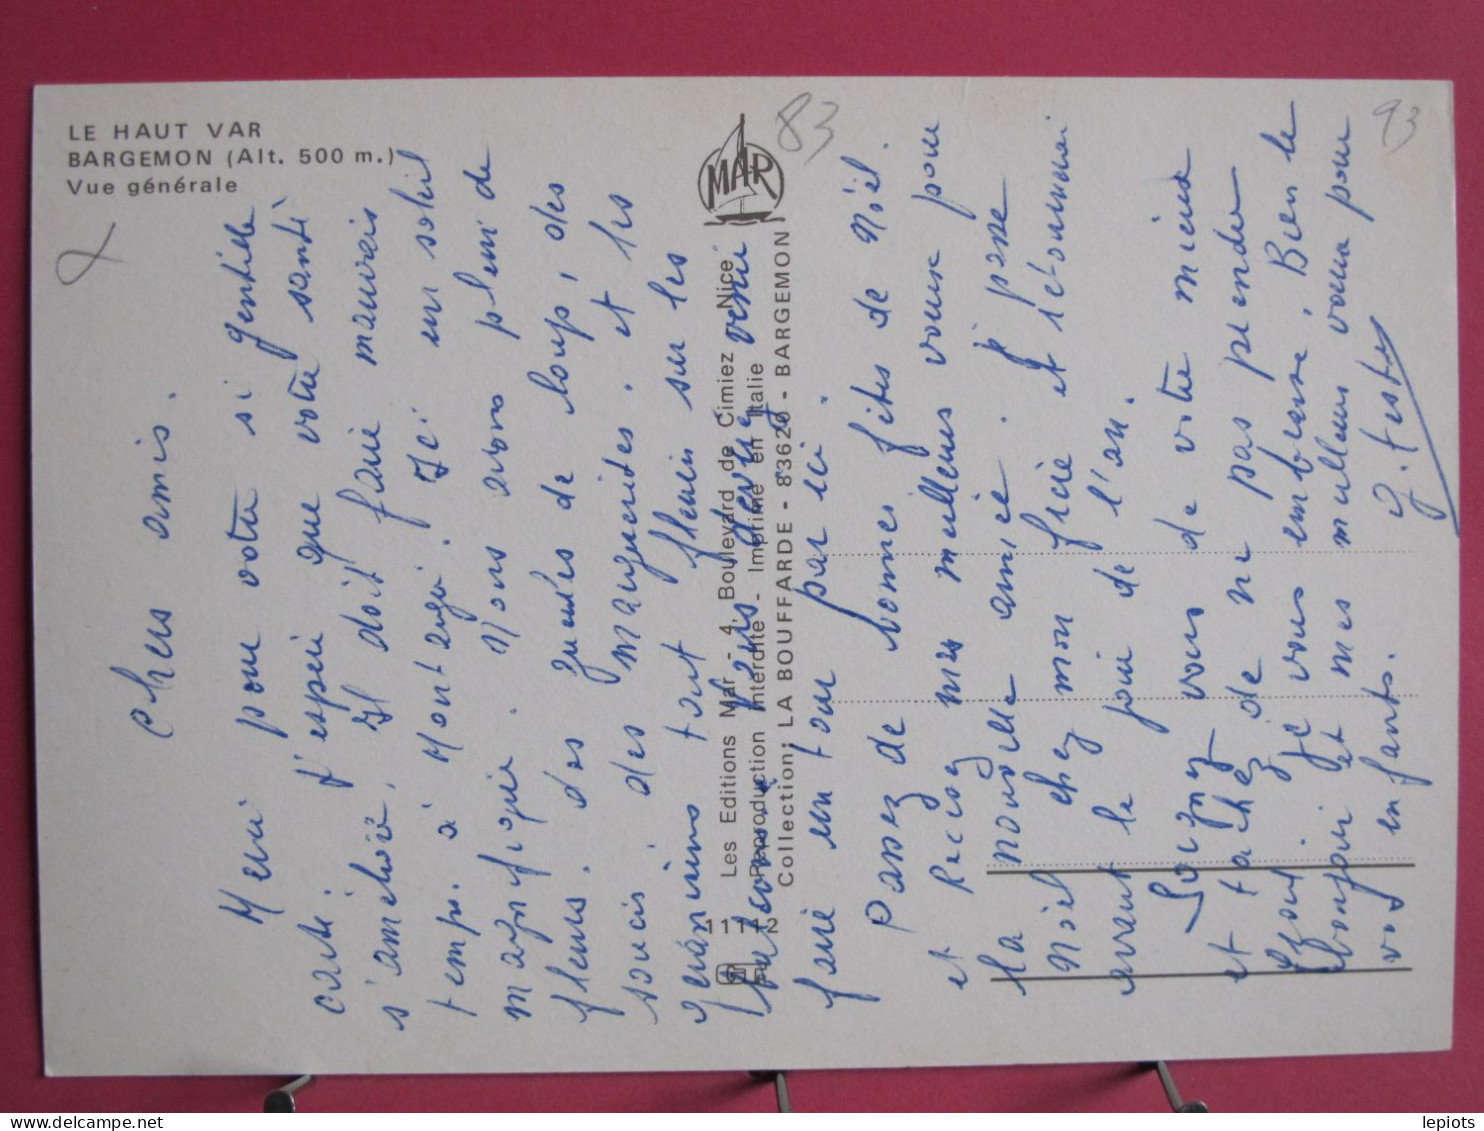 LE HAUT VAR
BARGEMON (Alt. 500 m.)
Vue générale
83
93
MAR
11112
Les Editions Mar - 4, Boulevard de Cimiez - Nice
Reproduction Interdite - Imprimé en Italie
Collection: LA BOUFFARDE - 83620 - BARGEMON
Chers amis.
Merci pour votre si gentille
carte. J'espère que votre santé
s'améliore. Il doit faire mauvais
temps à Montargis. Ici un soleil
magnifique. Nous avons plein de
fleurs. des gueules de loups, des
soucis des marguerites. et les
géraniums tout fleuris sur les
balcons. Fais venir
faire un tour par ici.
Passez de bonnes fêtes de Noël.
et Recevez mes meilleurs voeux pour
la nouvelle année. Je passe
Noël chez mon frère et retournerai
avant le jour de l'an.
Soignez vous de votre mieux
et tachez de ne pas prendre
froid Je vous embrasse. Bien le
bonjour et mes meilleurs voeux pour
vos enfants.
G. Teste
lepiots